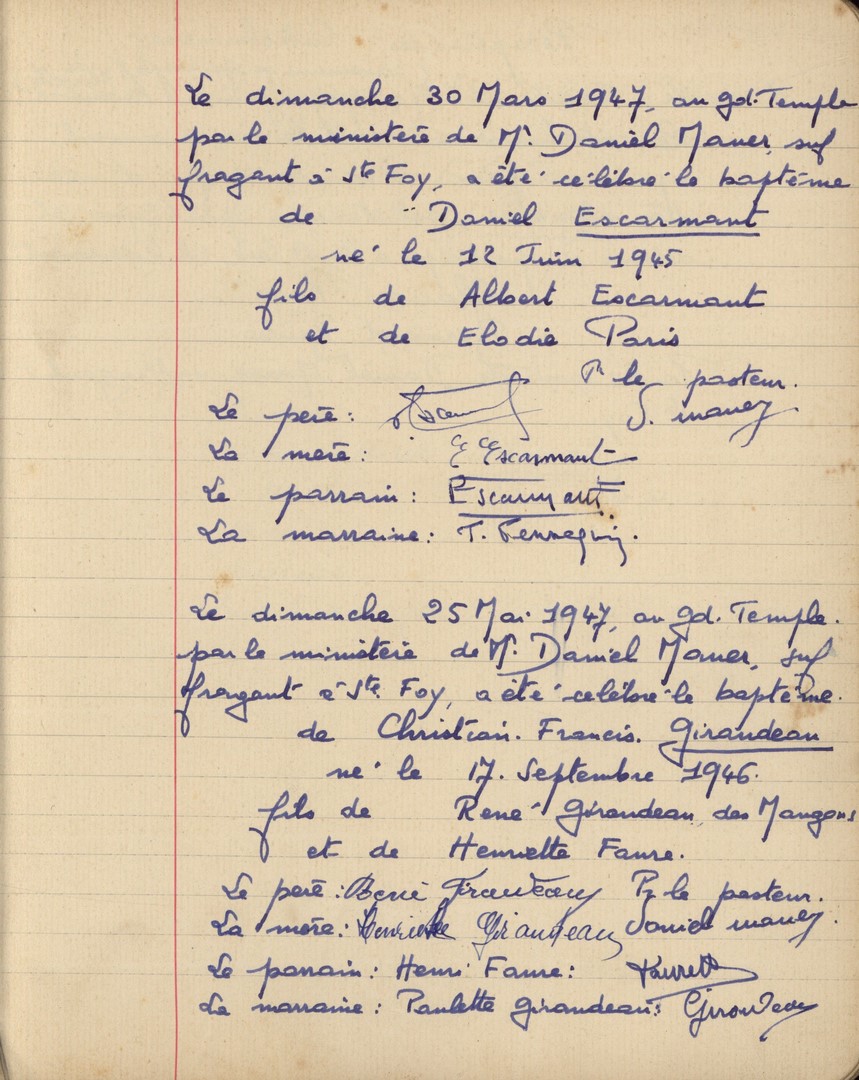 Le dimanche 30 Mars 1947, au gd. Temple
par le ministère de Mr. Daniel Mauer, suf
fragant à Ste Foy, a été célébré le baptême
de Daniel Escarmant
né le 12 Juin 1945
fils de Albert Escarmant
et de Elodie Paris
Pr le pasteur.
Le père : D. Mauer
La mère : E Escarmant
Le parrain : Escarmant
La marraine : T.
Le dimanche 25 Mai 1947, au gd. Temple.
par le ministère de Mr. Daniel Mauer, suf
fragant à Ste Foy, a été célébré le baptême.
de Christian. Francis. Giraudeau
né le 17. Septembre 1946.
fils de René Giraudeau, des Maugons
et de Henriette Faure.
Le père : René Giraudeau Pr le pasteur.
La mère : Henriette Giraudeau Daniel Mauer.
Le parrain : Henri Faure :
La marraine : Paulette Giraudeau : Giraudeau